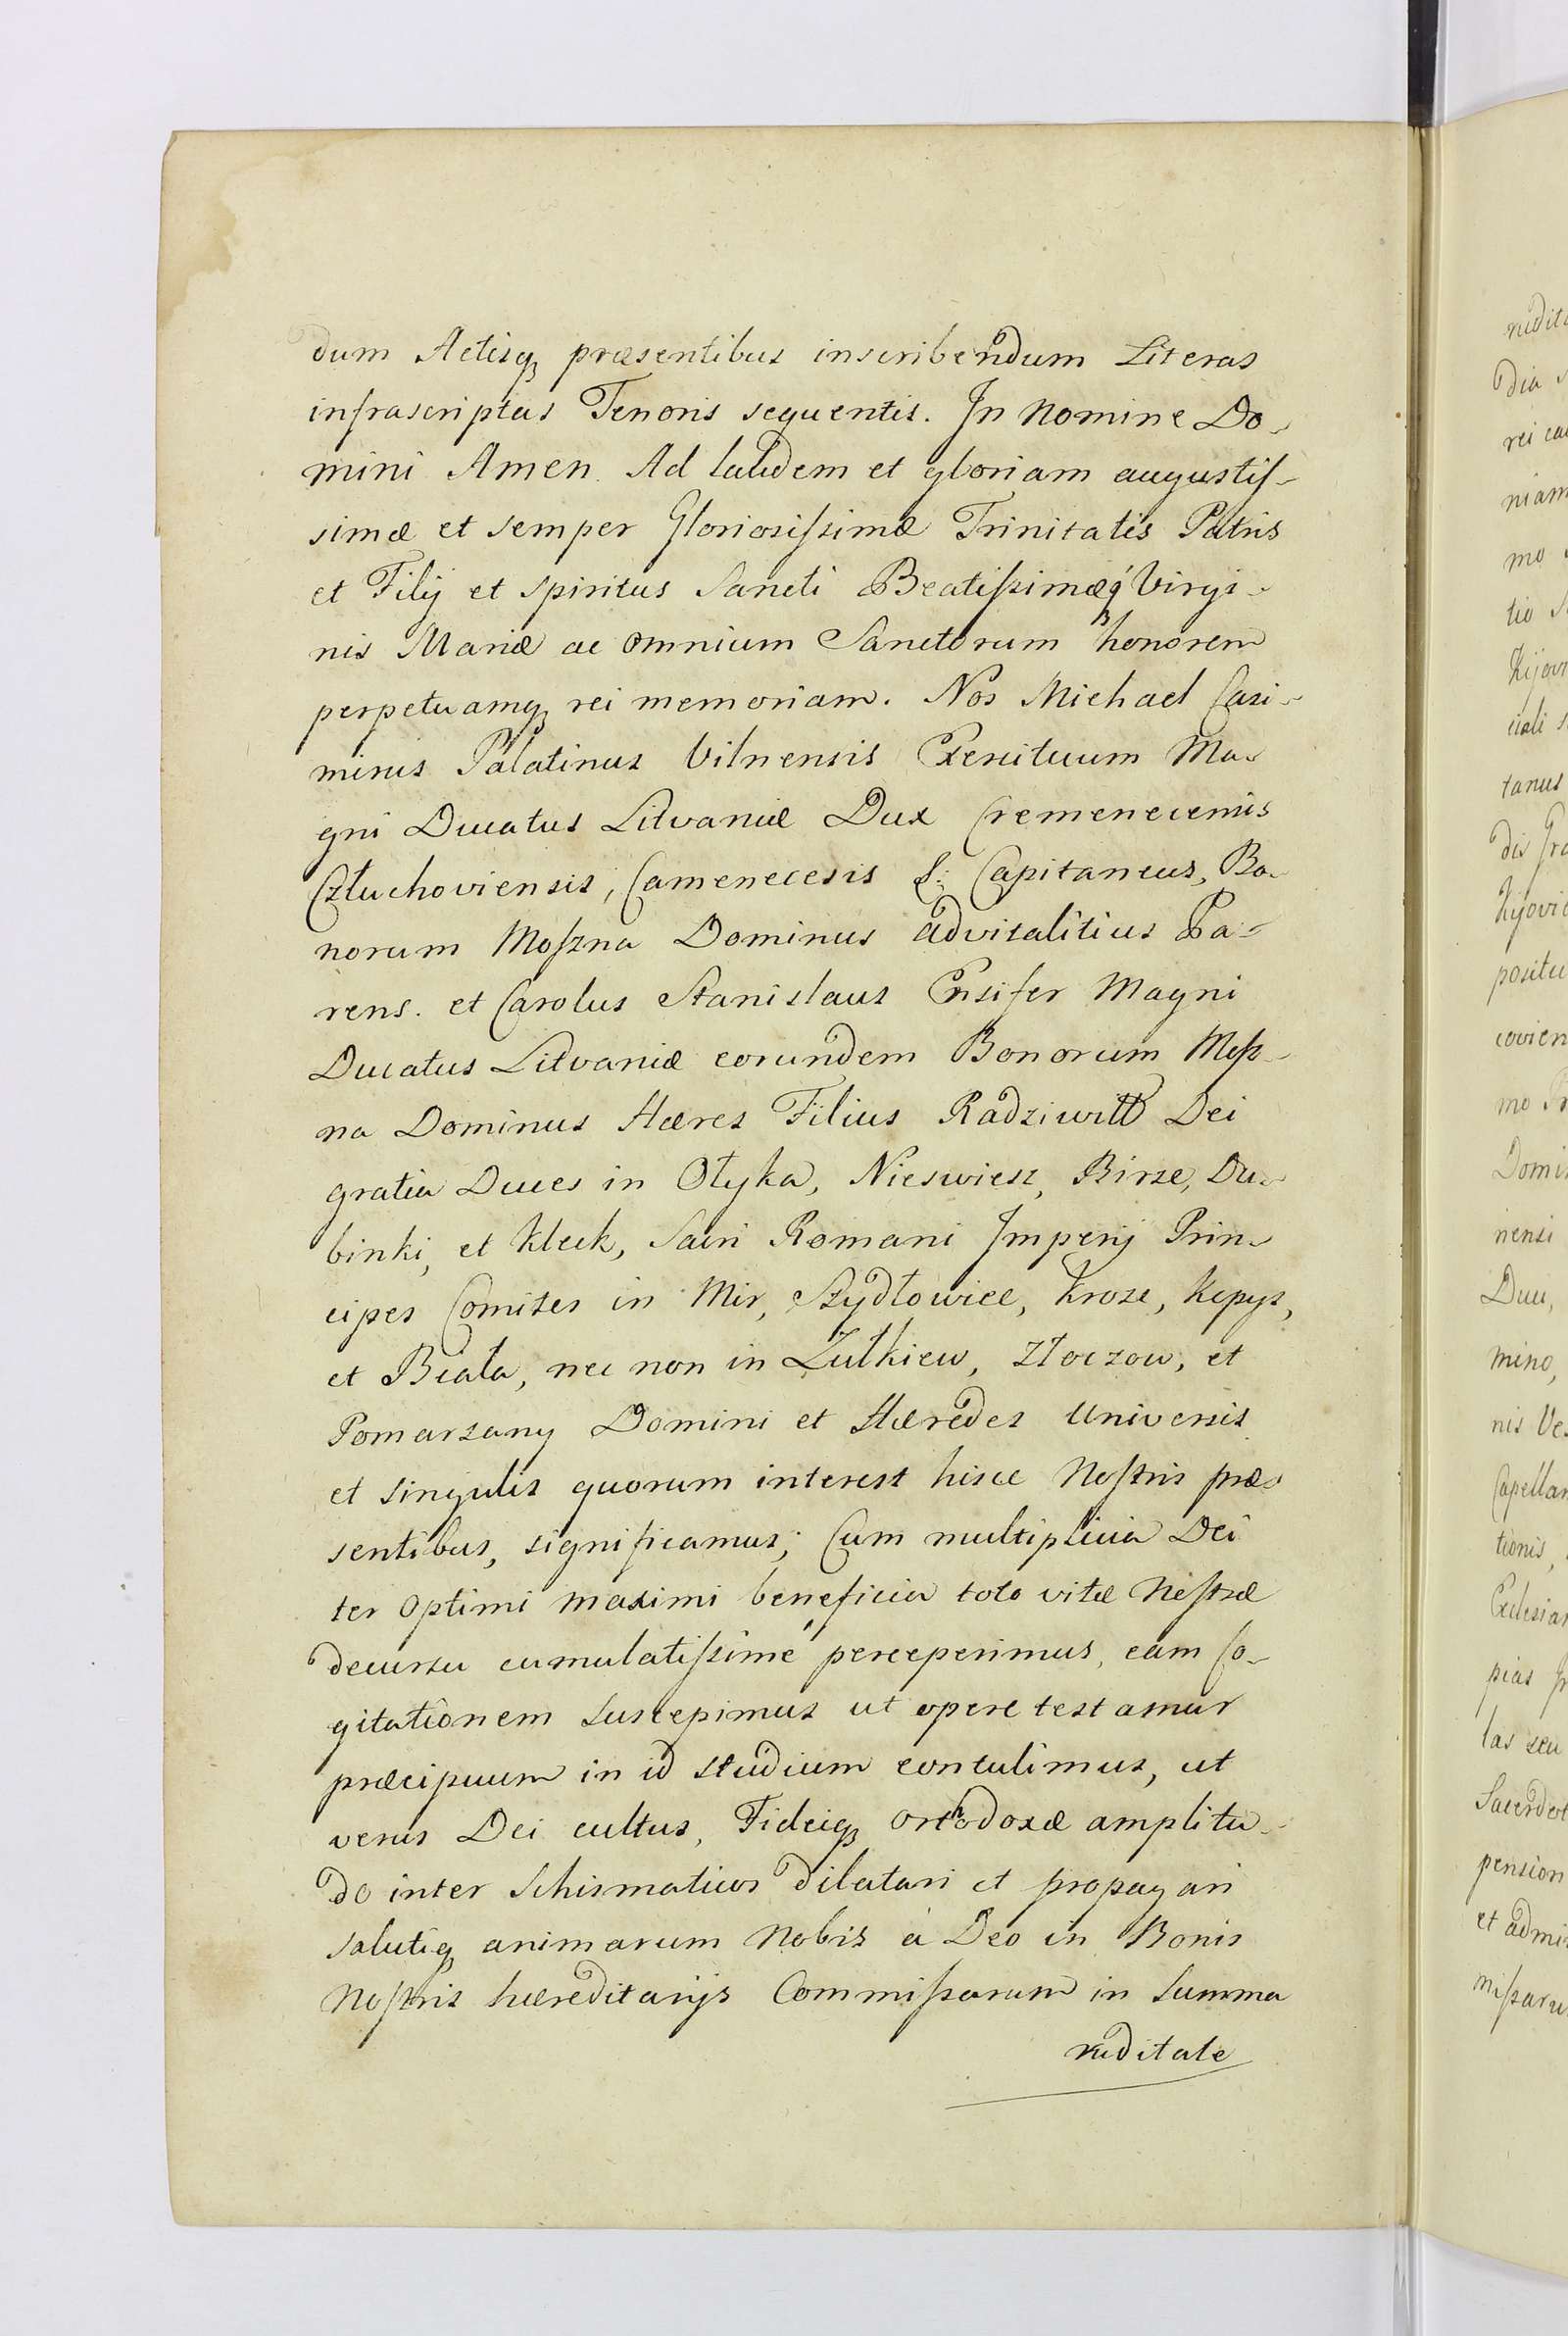 dum Actisq₃ præsentibus inscribendum Literas
infrascriptas Tenoris sequentis. In Nomine Do-
mini Amen. Ad laudem et gloriam augustiſ-
simæ et semper Gloriosiſsimæ Trinitatis Patris
et Filij et Spiritus Sancti Beatiſsimæq₃ Virgi-
nis Mariæ ac omnium Sanctorum honorem
perpetuamq₃ rei memoriam. Nos Michael Casi-
mirus Palatinus Vilnensis Exercituum Ma-
gni Ducatus Litvaniæ Dux Cremenecensis
Człuchoviensis, Camenecesis &: Capitaneus, Bo-
norum Moſzna Dominus advitalitius Pa-
rens. et Carolus Stanislaus Ensifer Magni
Ducatus Litvaniæ eorundem Bonorum Moſz-
na Dominus Hæres Filius Radziwiłł Dei
gratia Duces in Ołyka, Nieswiesz, Birze, Du-
binki, et Kleck, Sacri Romani Imperij Prin-
cipes Comites in Mir, Szydłowiec, Kroze, Kopys,
et Biała, nec non in Zułkiew, Złoczow, et
Pomarzany Domini et Hæredes Universis
et singulis quorum interest hisce Noſtris præ-
sentibus, significamus; Cum multiplicia Dei
ter Optimi maximi beneficia toto vitæ Noſtræ
decursu cumulatiſsimè perceperimus, eam Co-
gitationem suscepimus ut opere testamur
præcipuum in id studium contulimus, ut
verus Dei cultus, Fideiq₃ orthodoxæ amplitu-
do inter Schismaticos dilatari et propagari
salutiq₃ animarum Nobis à Deo in Bonis
Noſtris hæreditarijs Commiſsarum in summa
ruditate